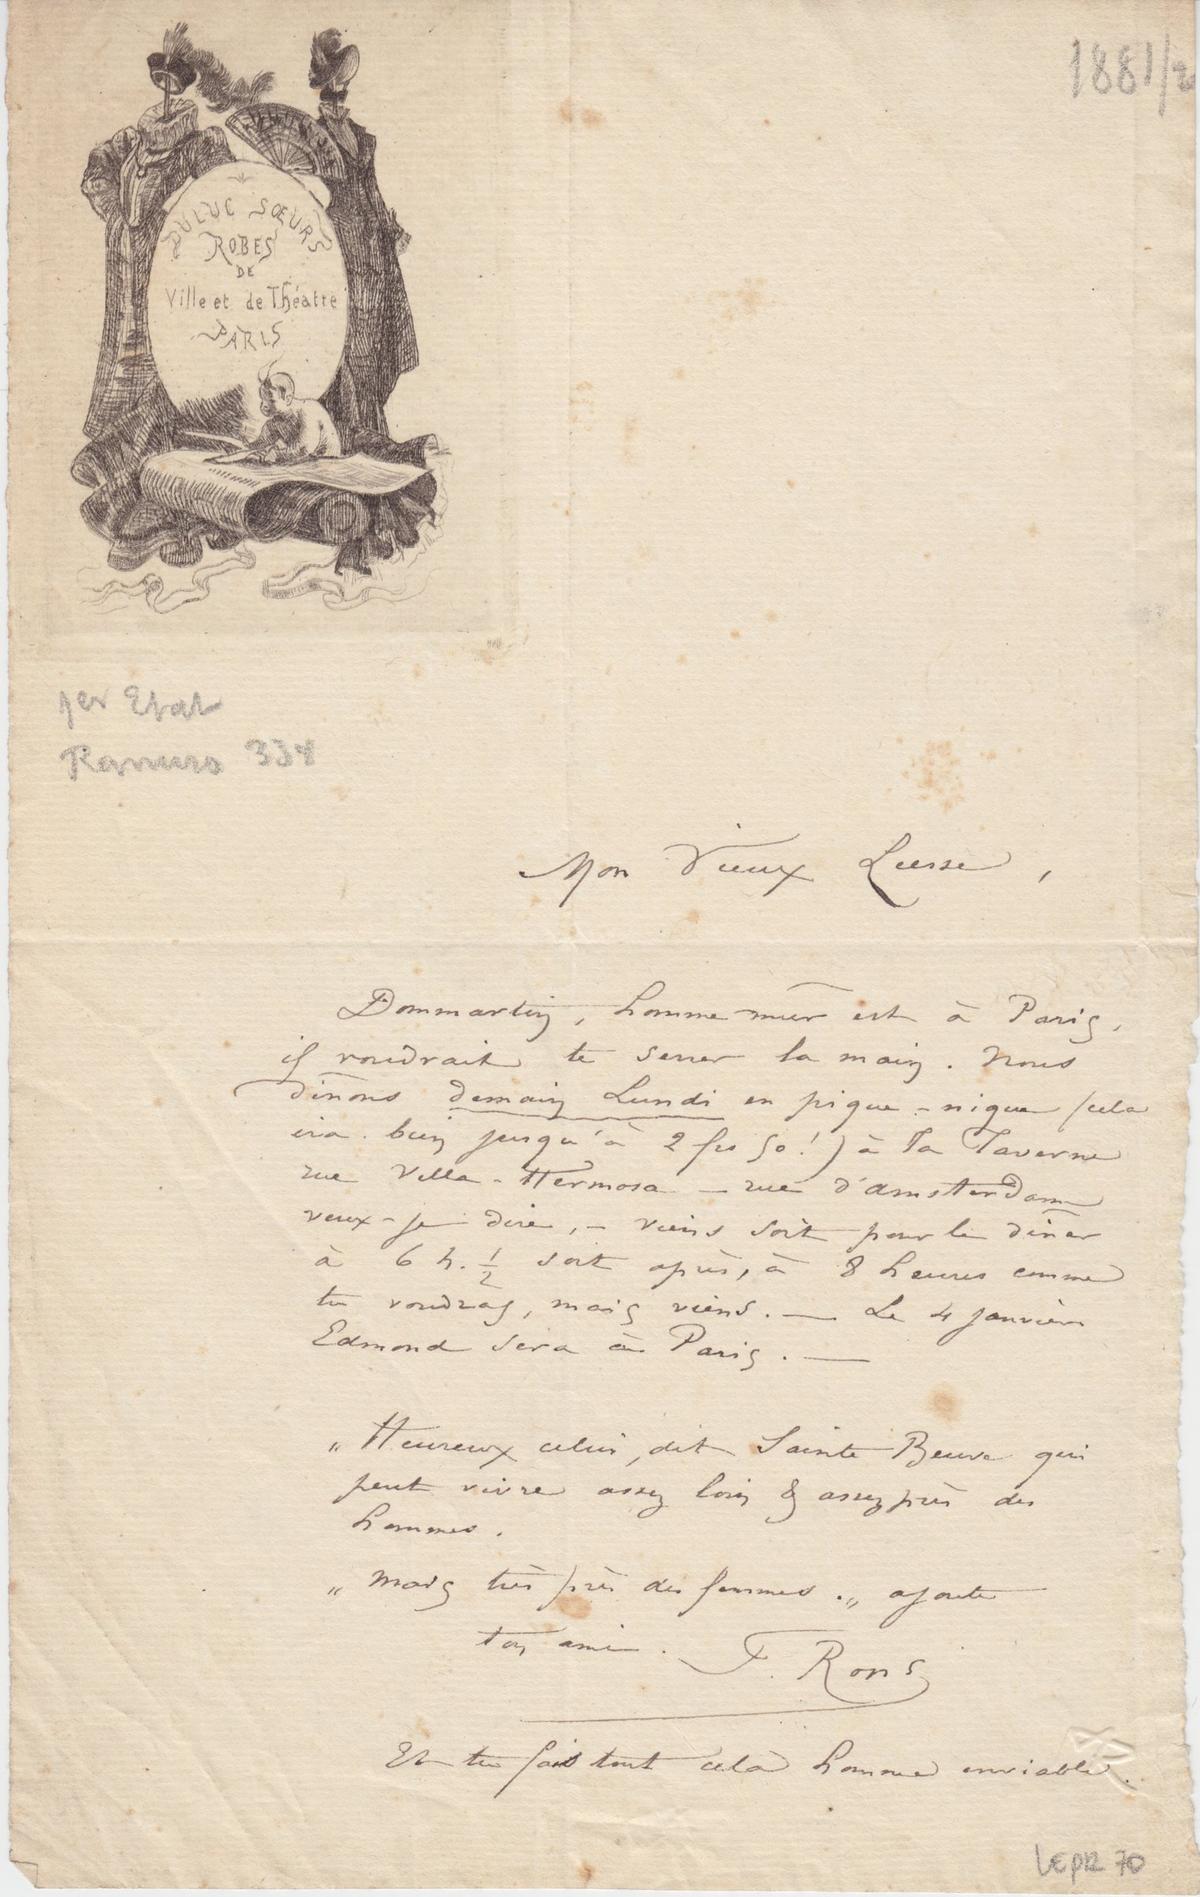 1881/2
DULUC SŒURS
ROBES
DE
Ville et de Théatre
PARIS
1er Etat
Ramiro 334
Mon Vieux Liesse,
Dommartin, homme mûr est à Paris,
il voudrait te serrer la main. Nous
dînons demain Lundi en pique-nique (cela
ira bien jusqu'à 2 frs 50!) à la Taverne
rue Villa-Hermosa – rue d'amsterdam
veux-je dire, – viens soit pour le dîner
à 6 h. 1/2 soit après, à 8 heures comme
tu voudras, mais viens. — Le 4 janvier
Edmond sera à Paris. —
„ Heureux celui, dit Sainte Beuve qui
peut vivre assez loin & assez près des
hommes.
„ Mais très près des femmes. „ ajoute
ton ami. F. Rops
Et tu fais tout cela homme enviable.
LEpr 70